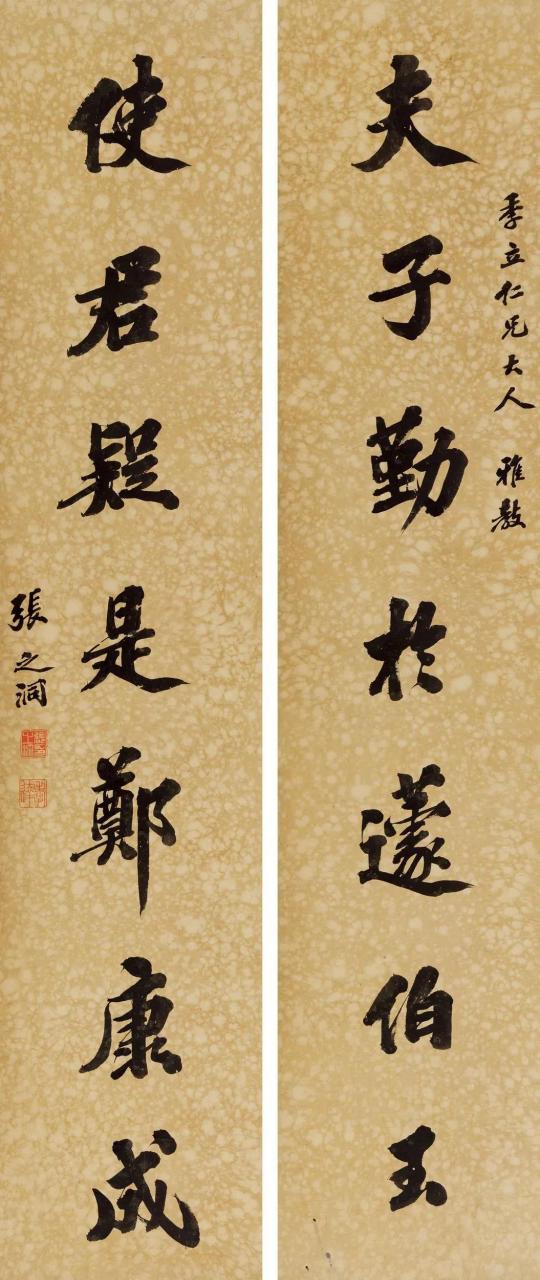 季立仁兄大人 雅教
夫子勤於蘧伯玉
使君疑是鄭康成
張之洞